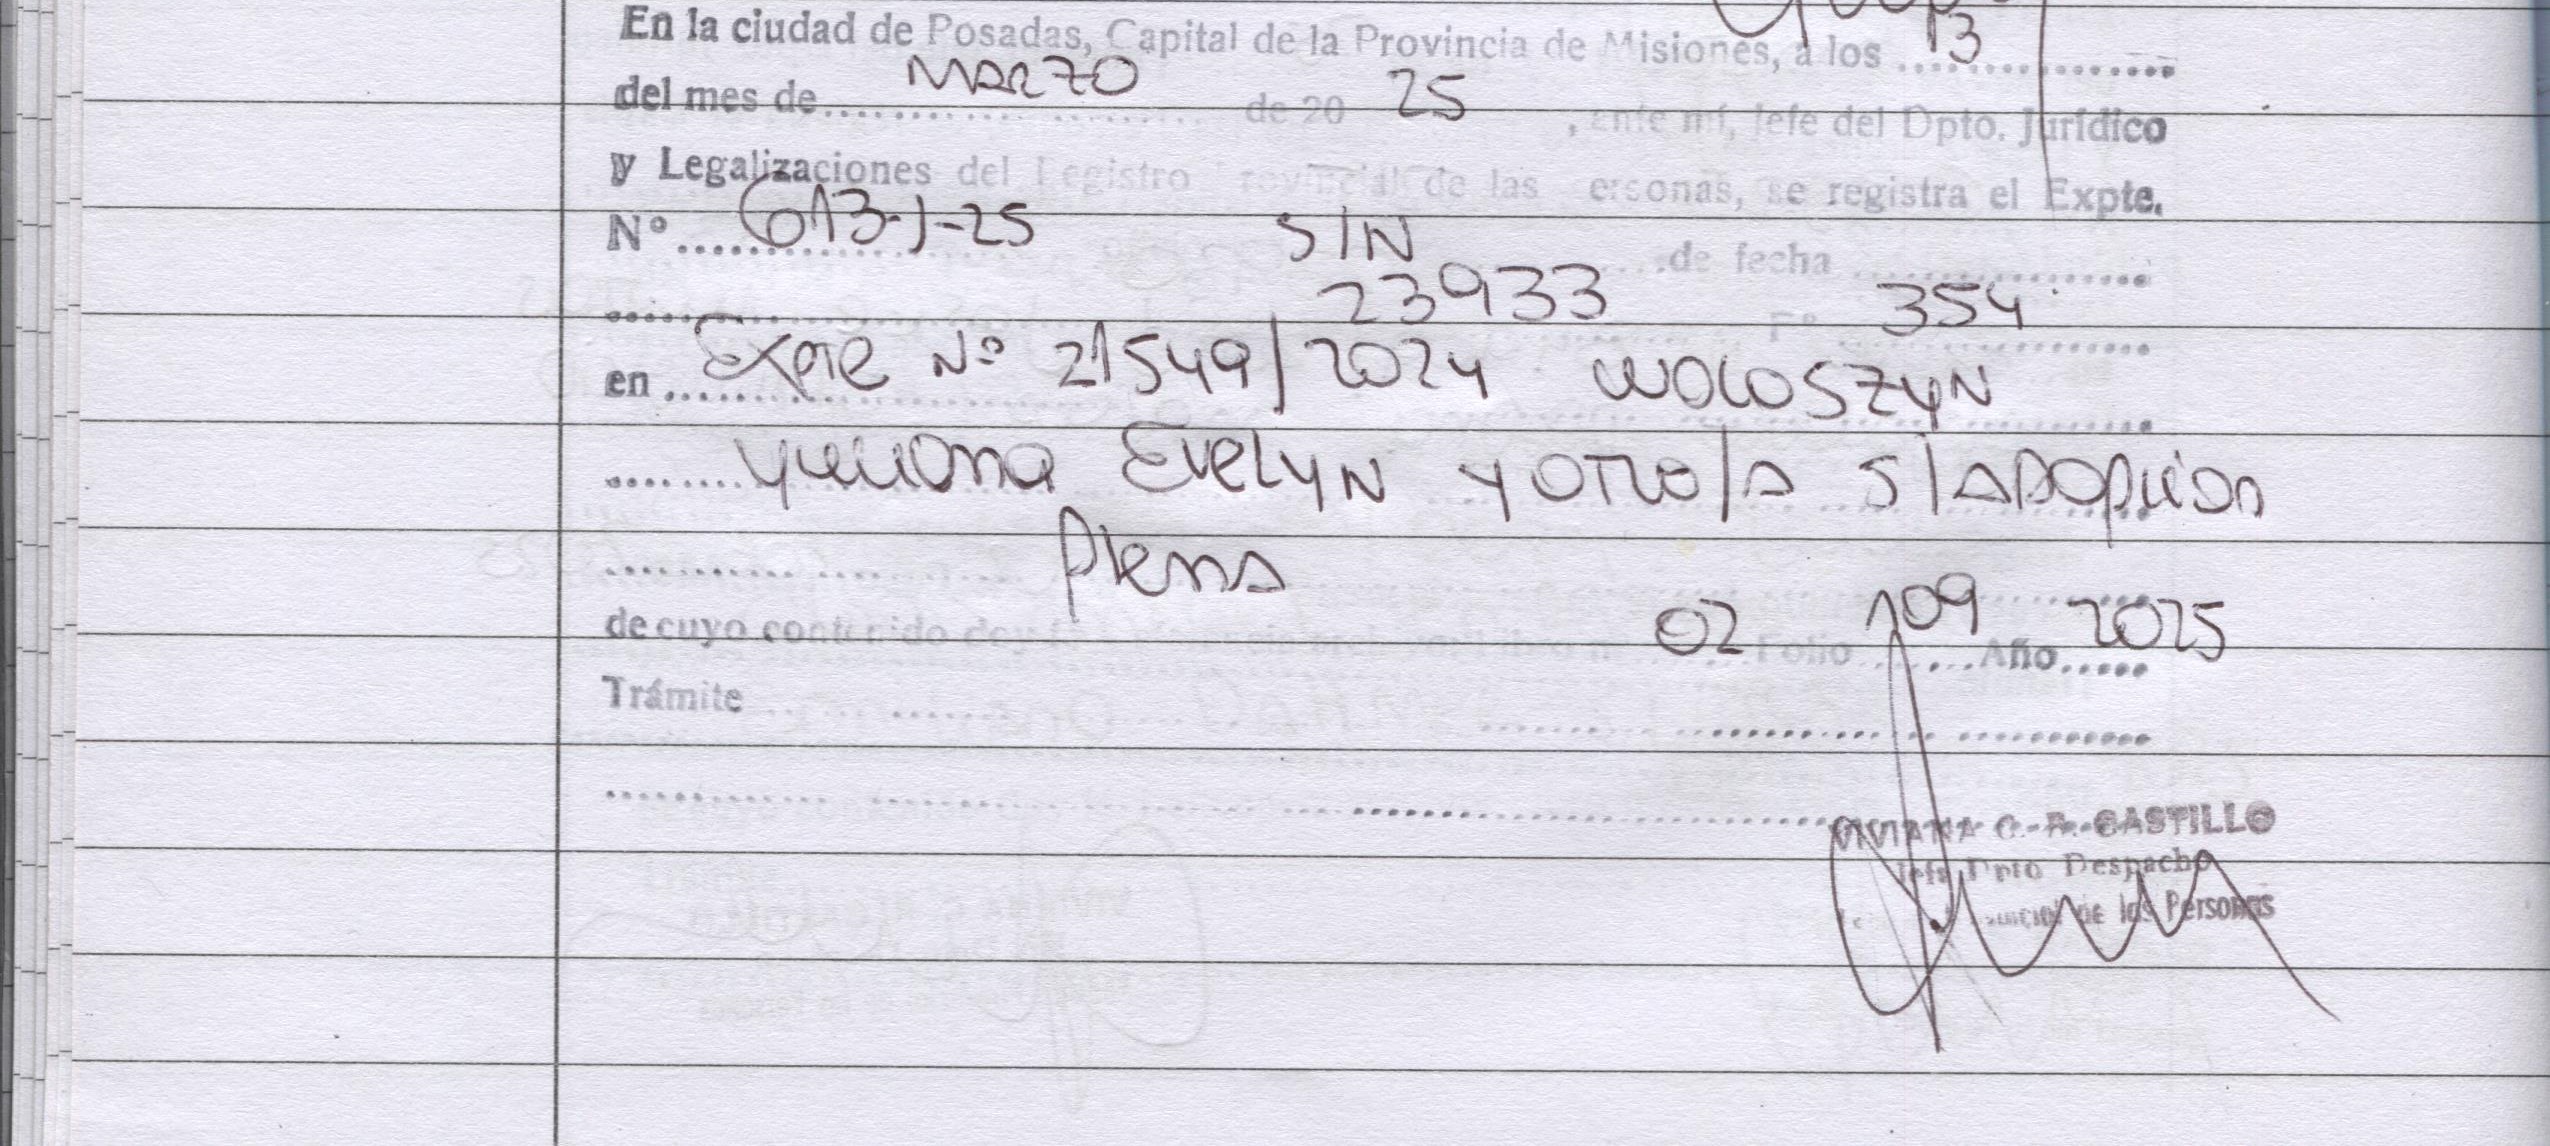 En la ciudad de Posadas, Capital de la Provincia de Misiones, a los 13
del mes de MARZO de 20 25, ante mí, Jefe del Dpto. Jurídico
y Legalizaciones del Registro Provincial de las Personas, se registra el Expte.
Nº 613-J-25 S/N de fecha
23933 Fº 354
en Expte Nº 21549/2024 WOLOSZYN
Yuliana Evelyn y OTRO/A S/ADOPCIÓN
Plena
de cuyo contenido doy fe 02 Folio 109 Año 2025
Trámite
VIVIANA C. R. CASTILLO
Jefa Dpto Despacho
de las Personas